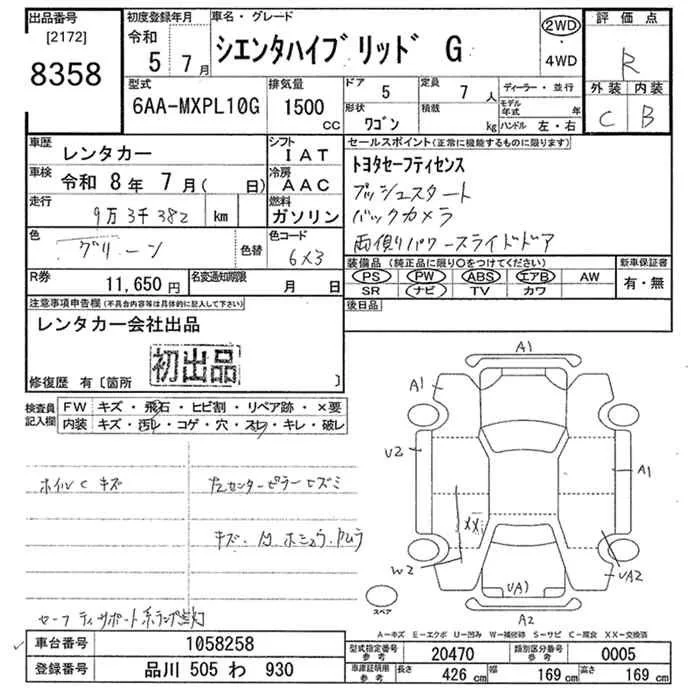 出品番号
[2172]
8358
初度登録年月
令和
5 7月
車名・グレード
シエンタハイブリッド G
2WD
・
4WD
評価点
R
外装 内装
C B
型式
6AA-MXPL10G
排気量
1500
CC
ドア
5
形状
ワゴン
定員
7 人
積載
kg
ディーラー・並行
モデル年式 年
ハンドル 左・右
車歴
レンタカー
シフト
IAT
車検
令和 8年 7月( 日)
冷房
AAC
走行
9万3千382 km
燃料
ガソリン
色
グリーン
色替
色コード
6X3
R券
11,650円
名変通知期限
月 日
セールスポイント(正常に機能するものに限ります)
トヨタセーフティセンス
プッシュスタート
バックカメラ
両側パワースライドドア
装備品(純正品に限り○をつけてください)
PS PW ABS エアB AW
SR ナビ TV カワ
新車保証書
有・無
後日品
注意事項申告欄(不具合内容等は具体的に記入して下さい)
レンタカー会社出品
初出品
修復歴 有〔箇所 〕
検査員
記入欄
FW キズ・飛石・ヒビ割・リペア跡・×要
内装 キズ・汚レ・コゲ・穴・スレ・キレ・破レ
ホイルCキズ
キズ・
セーフティサポート系ランプ点灯
A1
A1
U2
A1
XX
W2
UA2
UA1
A2
スペア
A−キズ E−エクボ U−凹み W−補修跡 S−サビ C−腐食 XX−交換済
車台番号
1058258
登録番号
品川 505 わ 930
型式指定番号
参考
20470
類別区分番号
参考
0005
車両証明用
参考
長さ
426 cm
幅
169 cm
高さ
169 cm